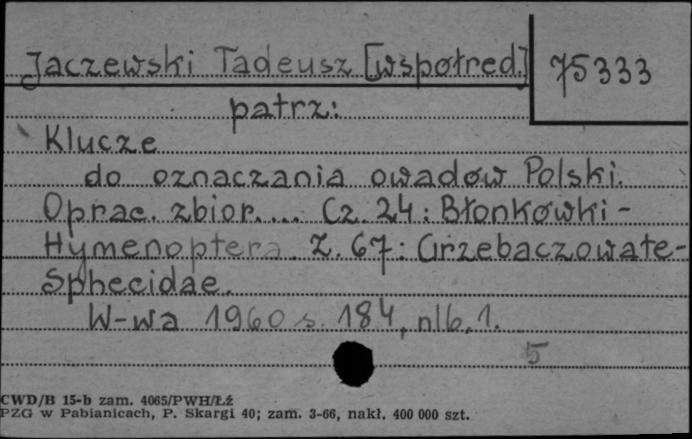 Jaczewski Tadeusz [współred.] 75333
patrz:
Klucze
do oznaczania owadów Polski.
Oprac. zbior.... Cz. 24: Błonkówki-
Hymenoptera. Z. 67: Grzebaczowate-
Sphecidae.
W-wa 1960 s. 184, nlb. 1.
5
CWD/B 15-b zam. 4065/PWH/Łź
PZG w Pabianicach, P. Skargi 40; zam. 3-66, nakł. 400 000 szt.